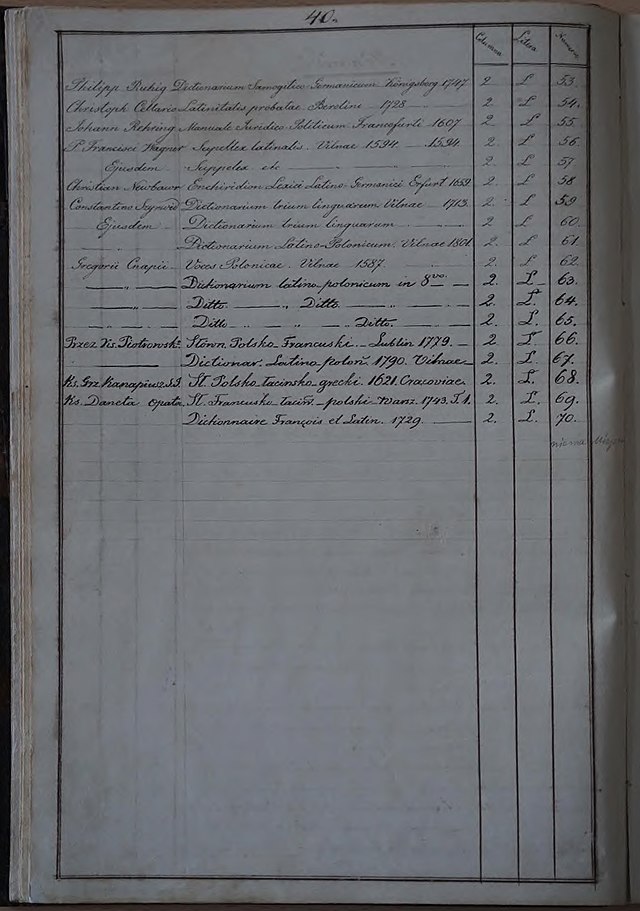 40.
Columna Litera Numerus
Philipp Ruhig Dictionarium Samogitico Germanicum Königsberg 1747 2 L 53.
Christoph Cellario Latinitatis probatae Berolini 1728 2 L 54.
Johann Rehring Manuale Juridico Politicum Francofurti 1607 2 L 55.
P. Francisci Wagner Supellex latinatis. Vilnae 1594 — 1594. 2. L 56.
Ejusdem Suppelex etc 2 L 57
Christian Enchiridion Lexici Latino-Germanici Erfurt 2. L 58
Constantino Szyrwid Dictionarium trium linguarum Vilnae 1713. 2. L 59
Ejusdem Dictionarium trium linguarum 2. L 60.
„ Dictionarium Latino-Polonicum. Vilnae 1801. 2. L 61.
Gregorii Cnapii Voces Polonicae. Vilnae 1587. 2. L 62.
— „ — Dictionarium latino-polonicum in 8vo. — 2. L. 63.
— „ — Ditto. — „ Ditto. — 2. L. 64.
— „ — Ditto — „ — Ditto. — 2. L. 65.
Przez Vis. Piotrowsk. Słown Polsko Francuski. Lublin 1779. — 2. L. 66.
Dictionar. Latino polon. 1790. Vilnae 2. L. 67.
Ks. Grz Kanapiusz S.J. Sł. Polsko-łacinsko-grecki. 1621. Cracoviae. 2. L. 68.
Ks. Daneta opata Sł. Francusko-łaciń.-polski Warz. 1743. T.1. 2. L. 69.
Dictionnaire François et Latin. 1729. — 2. L. 70.